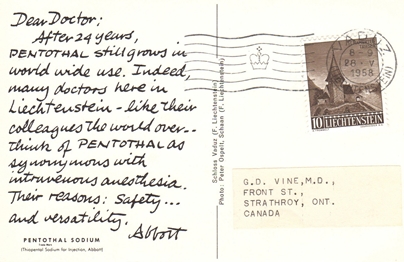 Dear Doctor;
After 24 years,
PENTOTHAL still grows in
world wide use. Indeed,
many doctors here in
Liechtenstein - like their
colleagues the world over...
think of PENTOTHAL as
synonymous with
intravenous anesthesia.
Their reasons: Safety...
and versatility.
Abbott
PENTOTHAL SODIUM
(Thiopental Sodium for Injection, Abbott)
Schloss Vaduz (F. Liechtenstein)
Photo: Peter Ospelt, Schaan (F. Liechtenstein)
VADUZ
28-V
1958
10 LIECHTENSTEIN
G.D. VINE, M.D.,
FRONT ST.,
STRATHROY, ONT.
CANADA